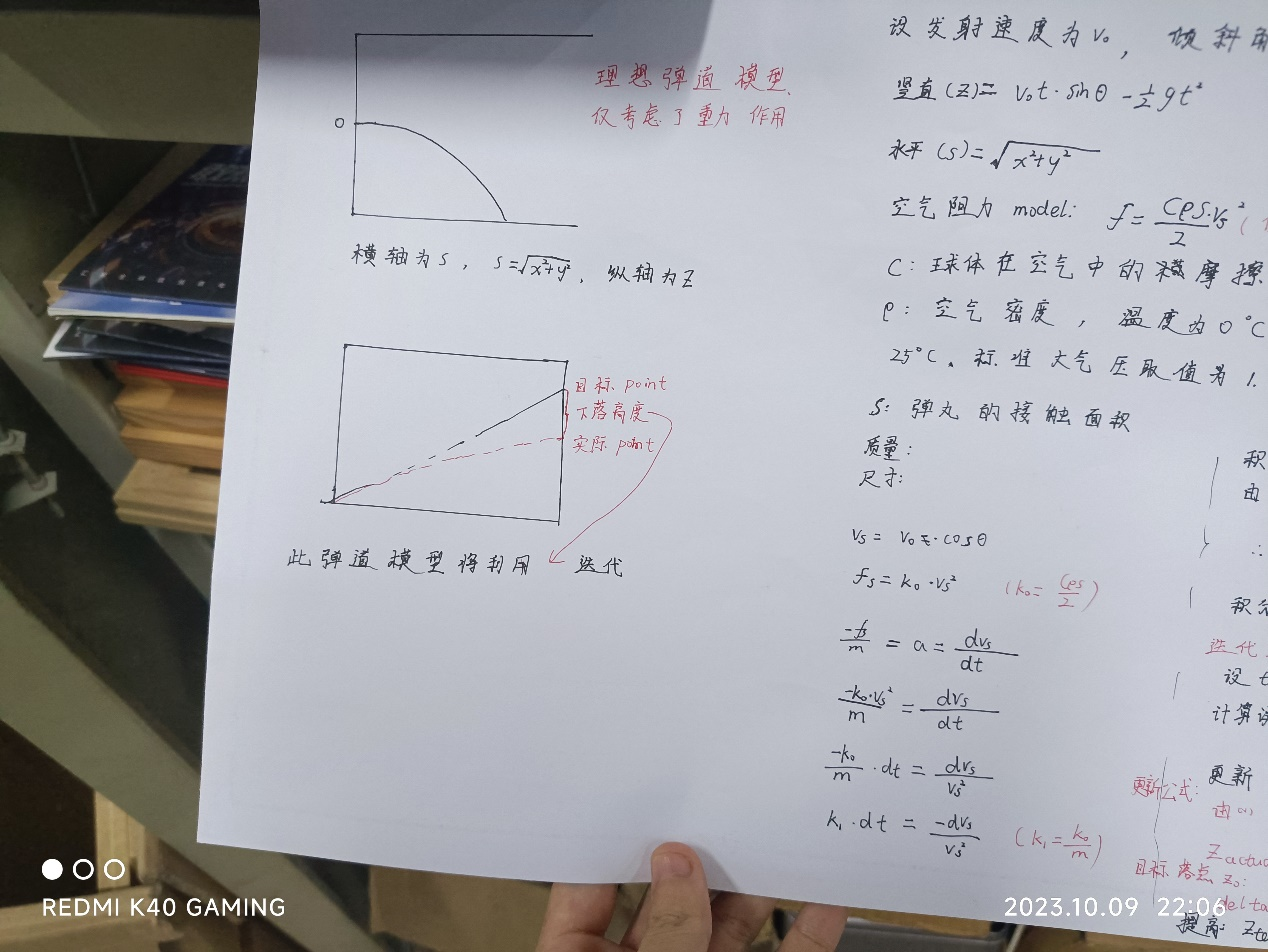 0
理想弹道模型.
仅考虑了重力作用
横轴为s, s=√(x²+y²), 纵轴为Z
目标point
下落高度
实际point
此弹道模型将利用 迭代
设发射速度为v₀, 倾斜
竖直(Z)= v₀t·sinθ -½gt²
水平(s)=√(x²+y²)
空气阻力 model: f= CρS·vs²/2
C: 球体在空气中的 摩擦
ρ: 空气密度, 温度为0°C
25°C. 标准大气压取值为1.
S: 弹丸的接触面积
质量:
尺寸:
vs = v₀ ·cosθ
fs = k₀ ·vs² (k₀= Cρs/2)
-fs/m = a = dvs/dt
-k₀·vs²/m = dvs/dt
-k₀/m ·dt = dvs/vs²
k₁ ·dt = -dvs/vs² (k₁= k₀/m)
积
由
∴
积分
迭代
设 t
计算
更新
更新公式:
由(1)
Z actua
目标落点 Z₀:
delta
提高: Zte
REDMI K40 GAMING
2023.10.09 22:06